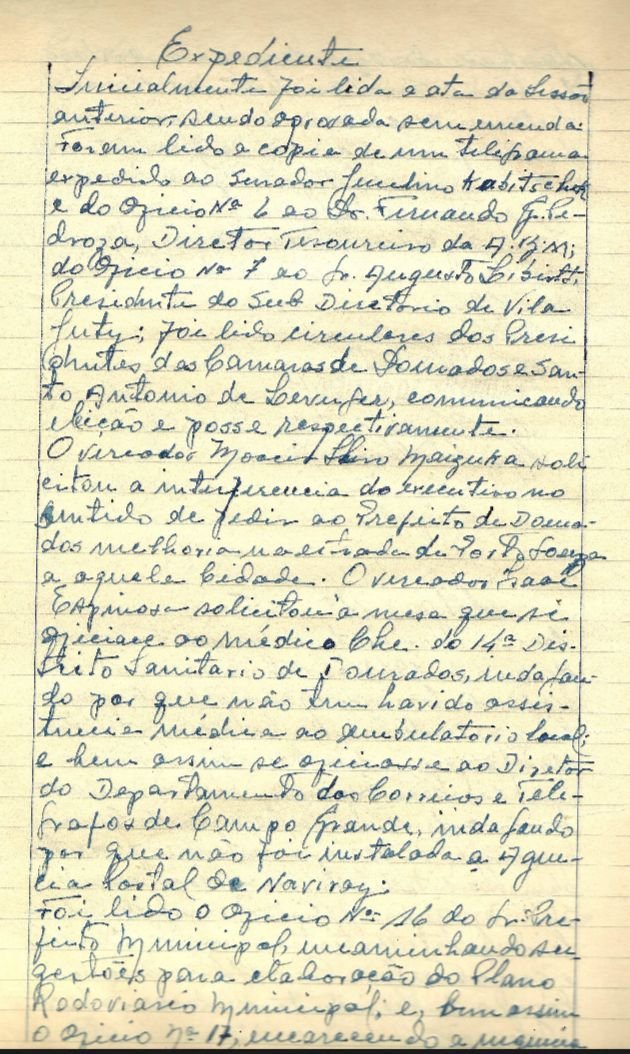 Expediente
Inicialmente foi lida a ata da Sessão
anterior, sendo aprovada sem emenda.
Foram lido a copia de um telegrama
expedido ao Senador Juscelino Kubitschek
e do Oficio Nº 6 ao Dr. Fernando G. Pe-
droza, Diretor Tesoureiro da A.B.M;
do Oficio Nº 7 ao Sr. Augusto
Presidente do Sub Diretorio de Vila
Juty; foi lido circulares dos Presi
dentes das Camaras de Dourados e San-
to Antonio de Leverger, comunicando
eleição e posse respectivamente.
O vereador Moacir Maizuka soli
citou a interferencia do executivo no
sentido de pedir ao Prefeito de Doura-
dos melhoria na estrada de Porto
a aquela Cidade. O vereador Isaac
Espinosa solicitou a mesa que se
oficiace ao médico Che. do 14º Dis-
trito Sanitario de Dourados, indagan-
do por que não tem havido assis-
tencia médica ao ambulatorio local;
e bem assim se oficiasse ao Diretor
do Departamento dos Correios e Tele-
grafos de Campo Grande, indagando
por que não foi instalada a Agen-
cia Postal de Naviray.
Foi lido o Oficio Nº 16 do Sr. Pre-
feito Municipal, incaminhando su-
gestões para elaboração do Plano
Rodoviario Municipal; e, bem assim
o Oficio nº 17, encarecendo a